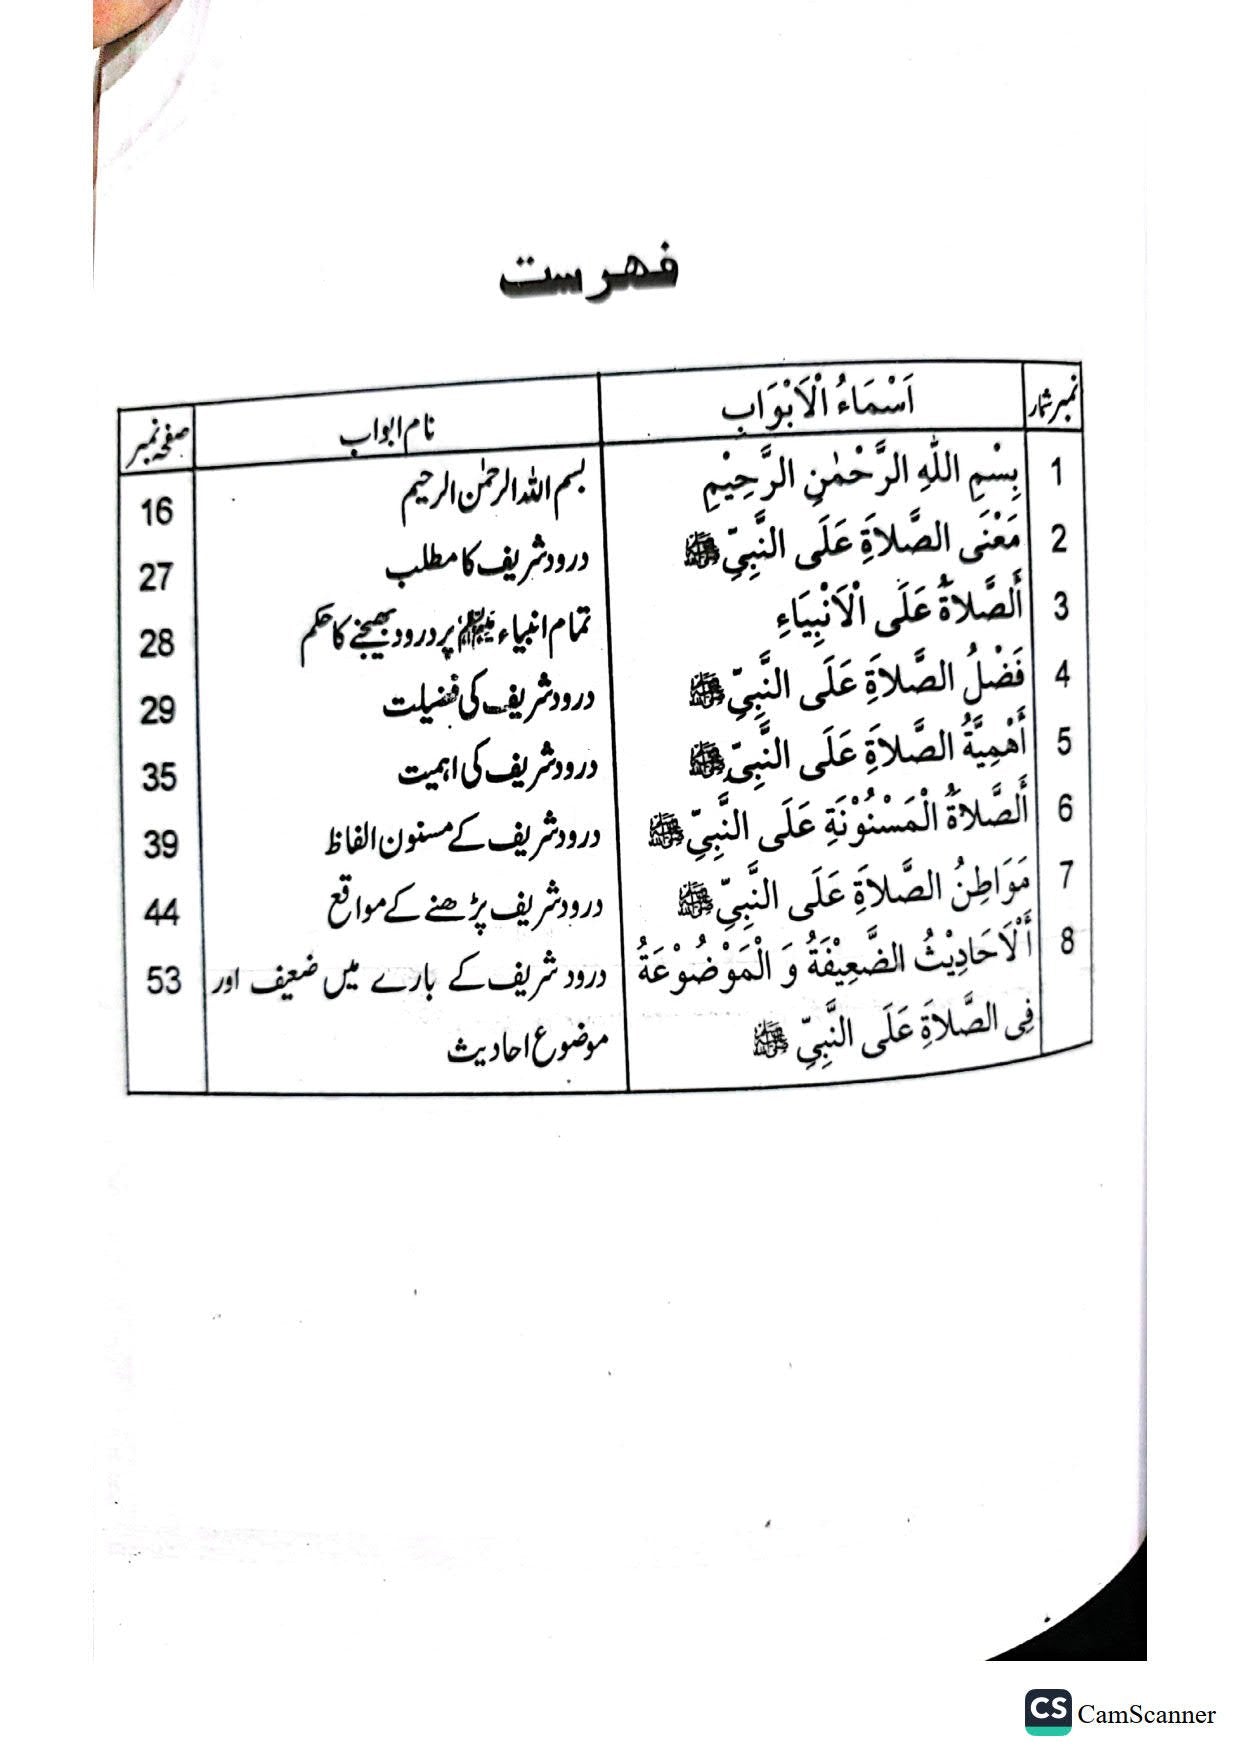 فہرست
نمبر شمار اَسْمَاءُ الْاَبْوَابِ نام ابواب صفحہ نمبر
1 بِسْمِ اللّٰهِ الرَّحْمٰنِ الرَّحِيْمِ بسم اللہ الرحمٰن الرحیم 16
2 مَعْنَى الصَّلاَةِ عَلَى النَّبِيِّ ﷺ درود شریف کا مطلب 27
3 أَلصَّلاَةُ عَلَى الْاَنْبِيَاءِ تمام انبیاء پر درود بھیجنے کا حکم 28
4 فَضْلُ الصَّلاَةِ عَلَى النَّبِيِّ ﷺ درود شریف کی فضیلت 29
5 أَهْمِيَّةُ الصَّلاَةِ عَلَى النَّبِيِّ ﷺ درود شریف کی اہمیت 35
6 أَلصَّلاَةُ الْمَسْنُوْنَةِ عَلَى النَّبِيِّ ﷺ درود شریف کے مسنون الفاظ 39
7 مَوَاطِنُ الصَّلاَةِ عَلَى النَّبِيِّ ﷺ درود شریف پڑھنے کے مواقع 44
8 أَلْاَحَادِيْثُ الضَّعِيْفَةُ وَ الْمَوْضُوْعَةُ درود شریف کے بارے میں ضعیف اور 53
فِي الصَّلاَةِ عَلَى النَّبِيِّ ﷺ موضوع احادیث
CS CamScanner